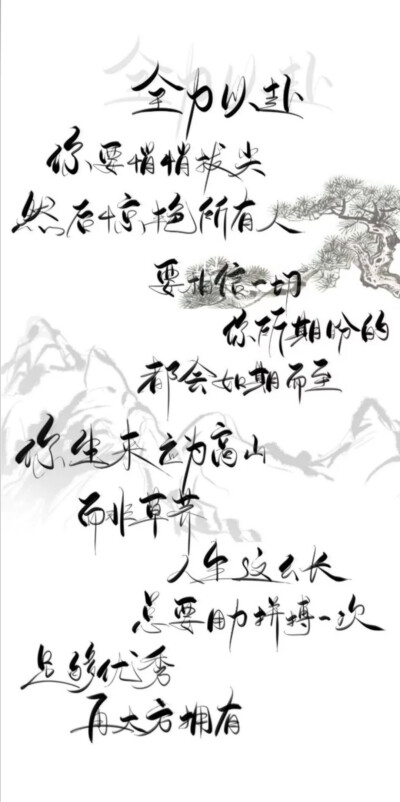 全力以赴
你要悄悄拔尖
然后惊艳所有人
要相信一切
你所期盼的
都会如期而至
你生来应为高山
而非草芥
人生这么长
总要用力拼搏一次
足够优秀
再大方拥有